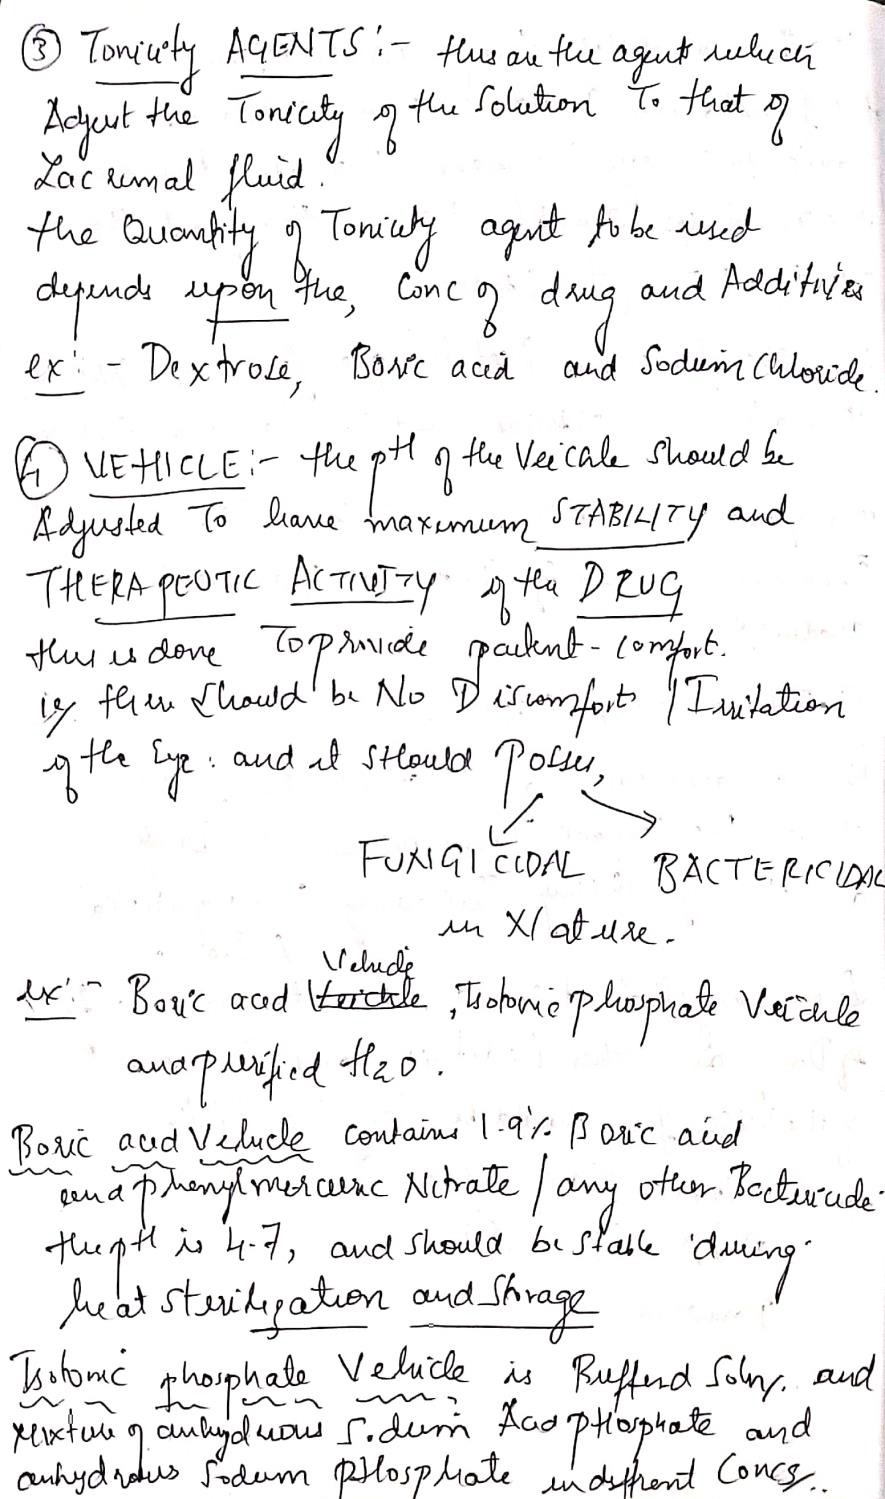 ③ Tonicity AGENTS :- this are the agents which
Adjust the Tonicity of the Solution To that of
Lacrimal fluid.
the Quantity of Tonicity agent to be used
depends upon the, Conc of drug and Additives
ex: - Dextrose, Boric acid and Sodium Chloride.
④ VEHICLE :- the pH of the Veicale should be
Adjusted To have maximum STABILITY and
THERAPEUTIC ACTIVITY of the DRUG
this is done To provide patient - comfort.
ie, there should be No Discomfort / Irritation
of the Eye. and it should Posses,
FUNGICIDAL BACTERICIDAL
in Nature.
Vehicle
ex: - Boric acid , Isotonic phosphate Veichle
and purified H2O.
Boric acid Vehicle contains 1.9% Boric acid
and phenylmercuric Nitrate / any other Bactericide.
the pH is 4.7, and should be stable during
heat sterilization and Storage
Isotonic phosphate Vehicle is Bufferd Soln, and
mixture of anhydrous Sodium Acid pHosphate and
anhydrous Sodium pHosphate in diffrent Concs..